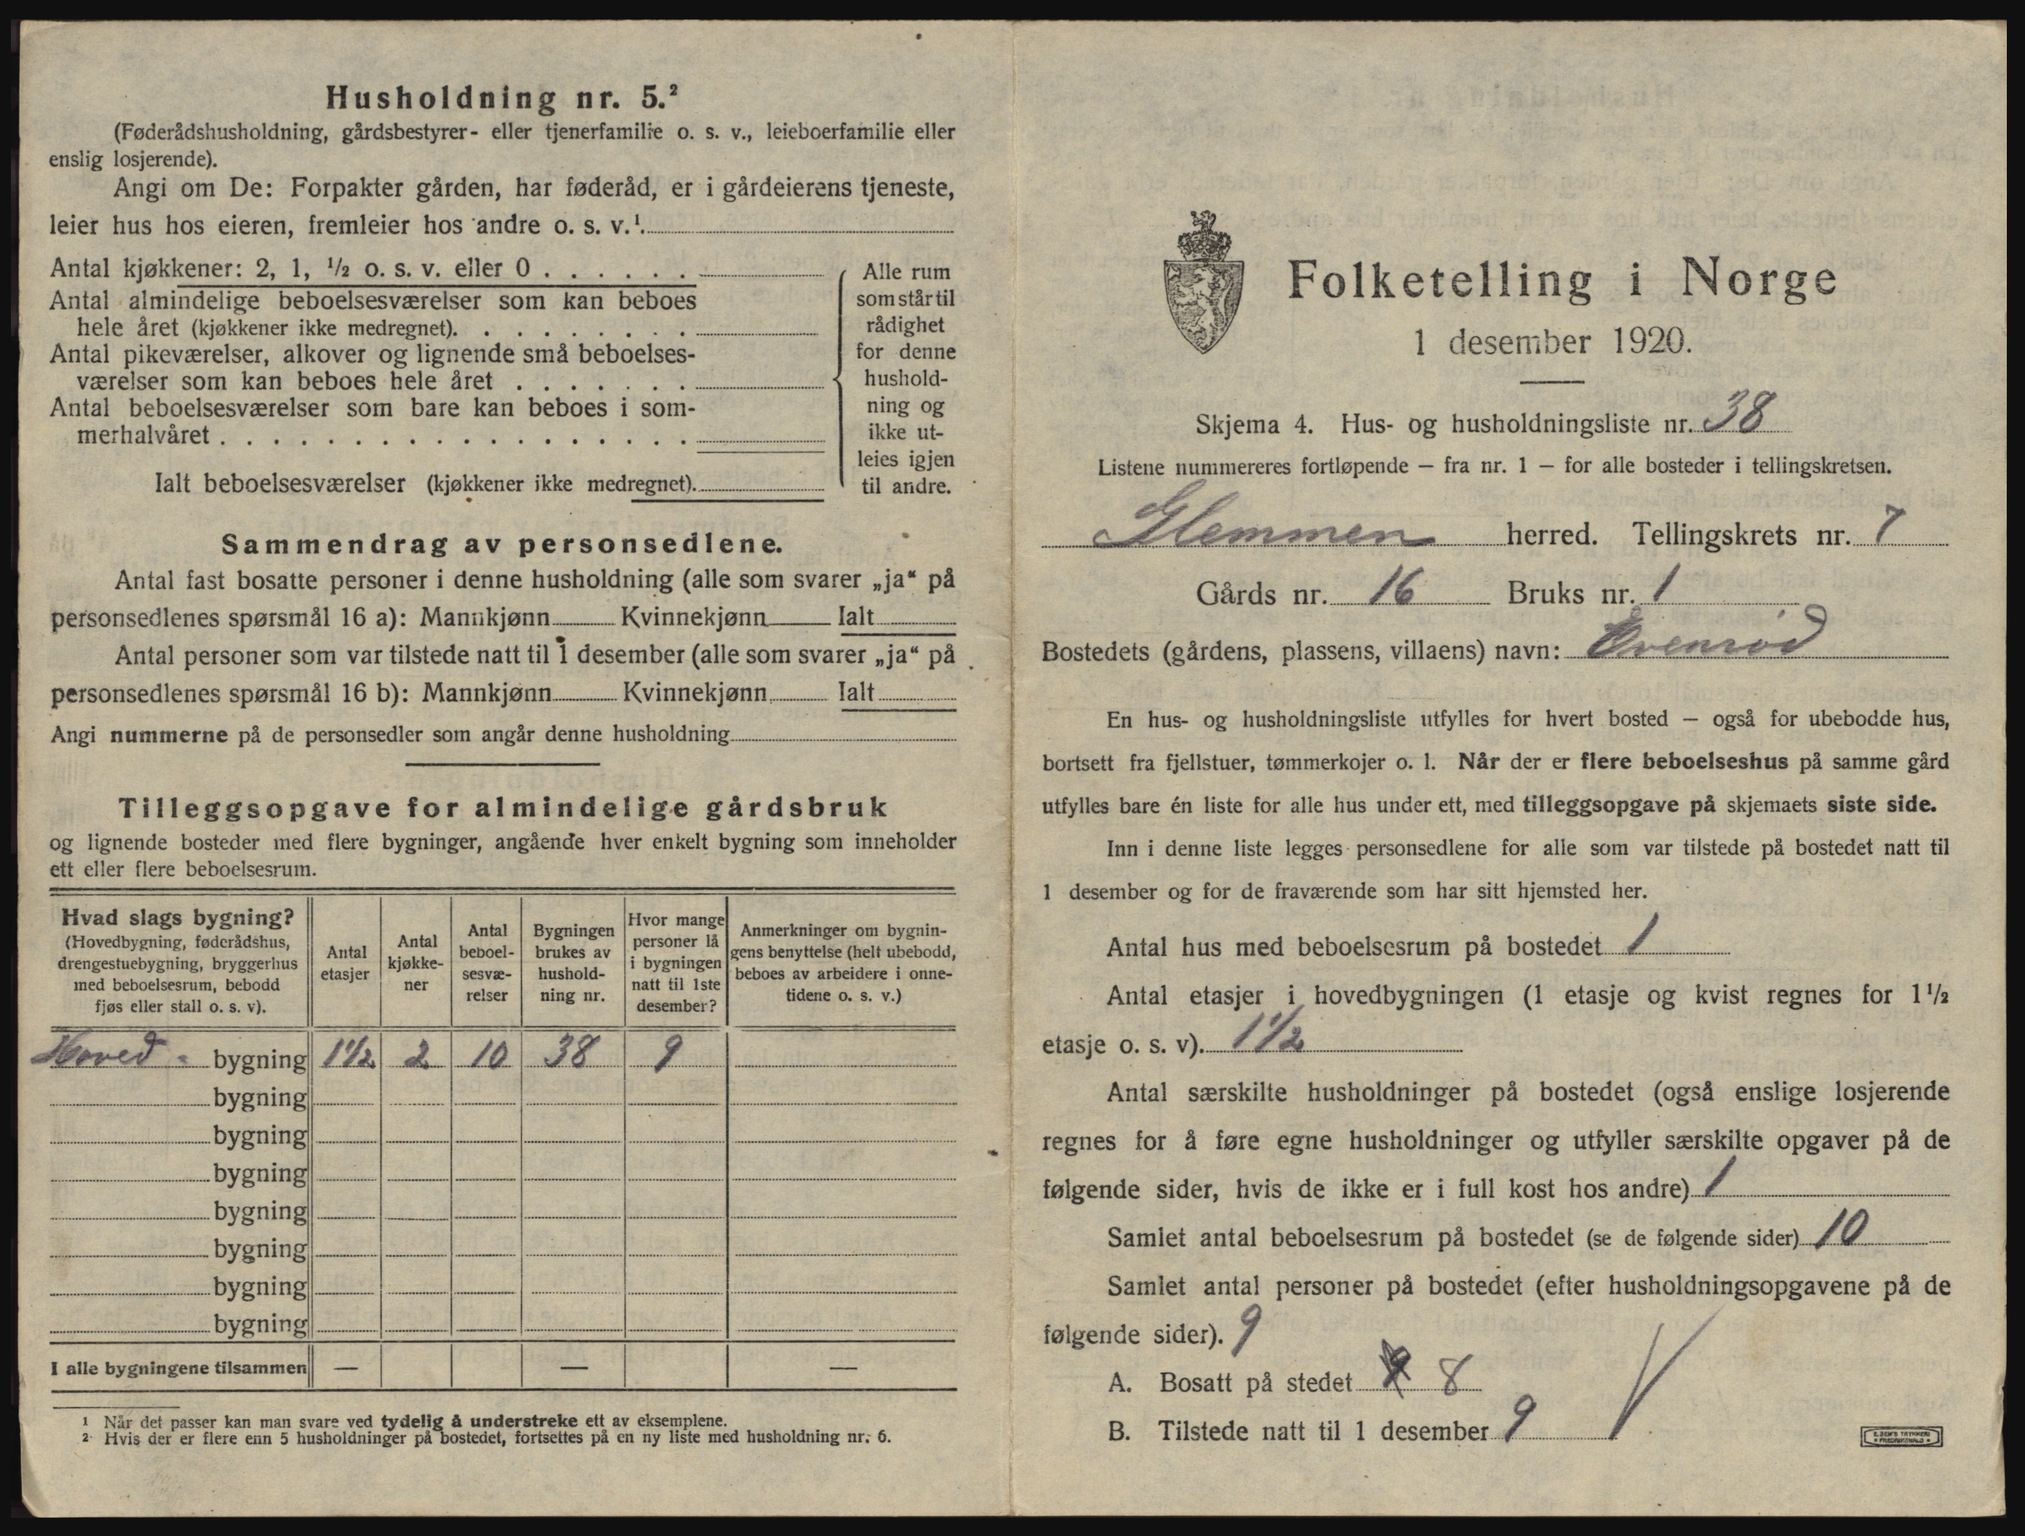 Husholdning nr. 5.²
(Føderådshusholdning, gårdsbestyrer- eller tjenerfamilie o. s. v., leieboerfamilie eller
enslig losjerende).
Angi om De: Forpakter gården, har føderåd, er i gårdeierens tjeneste,
leier hus hos eieren, fremleier hos andre o. s. v.¹.
Antal kjøkkener: 2, 1, ½ o. s. v. eller 0 . . . . . .
Antal almindelige beboelsesværelser som kan beboes
hele året (kjøkkener ikke medregnet). . . . . . . . .
Antal pikeværelser, alkover og lignende små beboelses-
værelser som kan beboes hele året . . . . . . .
Antal beboelsesværelser som bare kan beboes i som-
merhalvåret . . . . . . . . . . . . . . . . . .
Ialt beboelsesværelser (kjøkkener ikke medregnet).
Alle rum
som står til
rådighet
for denne
hushold-
ning og
ikke ut-
leies igjen
til andre.
Sammendrag av personsedlene.
Antal fast bosatte personer i denne husholdning (alle som svarer „ja“ på
personsedlenes spørsmål 16 a): Mannkjønn Kvinnekjønn Ialt
Antal personer som var tilstede natt til 1 desember (alle som svarer „ja“ på
personsedlenes spørsmål 16 b): Mannkjønn Kvinnekjønn Ialt
Angi nummerne på de personsedler som angår denne husholdning
Tilleggsopgave for almindelige gårdsbruk
og lignende bosteder med flere bygninger, angående hver enkelt bygning som inneholder
ett eller flere beboelsesrum.
Hvad slags bygning?
(Hovedbygning, føderådshus,
drengestuebygning, bryggerhus
med beboelsesrum, bebodd
fjøs eller stall o. s. v).
Antal
etasjer
Antal
kjøkke-
ner
Antal
beboel-
sesvæ-
relser
Bygningen
brukes av
hushold-
ning nr.
Hvor mange
personer lå
i bygningen
natt til 1ste
desember?
Anmerkninger om bygnin-
gens benyttelse (helt ubebodd,
beboes av arbeidere i onne-
tidene o. s. v.)
Hoved- bygning 1½ 2 10 38 9
bygning
bygning
bygning
bygning
bygning
bygning
bygning
I alle bygningene tilsammen — — —
¹ Når det passer kan man svare ved tydelig å understreke ett av eksemplene.
² Hvis der er flere enn 5 husholdninger på bostedet, fortsettes på en ny liste med husholdning nr. 6.
Folketelling i Norge
1 desember 1920.
Skjema 4. Hus- og husholdningsliste nr. 38
Listene nummereres fortløpende — fra nr. 1 — for alle bosteder i tellingskretsen.
Glemmen herred. Tellingskrets nr. 7
Gårds nr. 16 Bruks nr. 1
Bostedets (gårdens, plassens, villaens) navn: Evenrød
En hus- og husholdningsliste utfylles for hvert bosted — også for ubebodde hus,
bortsett fra fjellstuer, tømmerkojer o. l. Når der er flere beboelseshus på samme gård
utfylles bare én liste for alle hus under ett, med tilleggsopgave på skjemaets siste side.
Inn i denne liste legges personsedlene for alle som var tilstede på bostedet natt til
1 desember og for de fraværende som har sitt hjemsted her.
Antal hus med beboelsesrum på bostedet 1
Antal etasjer i hovedbygningen (1 etasje og kvist regnes for 1½
etasje o. s. v). 1½
Antal særskilte husholdninger på bostedet (også enslige losjerende
regnes for å føre egne husholdninger og utfyller særskilte opgaver på de
følgende sider, hvis de ikke er i full kost hos andre) 1
Samlet antal beboelsesrum på bostedet (se de følgende sider) 10
Samlet antal personer på bostedet (efter husholdningsopgavene på de
følgende sider). 9
A. Bosatt på stedet 9 8
B. Tilstede natt til 1 desember 9